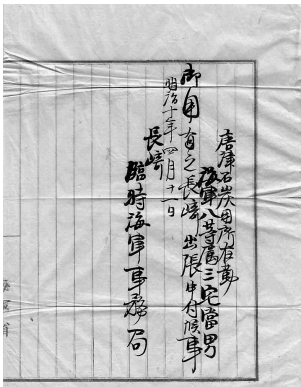 唐津石炭用所在勤
海軍八等属三宅當男
御用有之長崎出張申付候事
明治十年四月十一日
長崎
臨時海軍事務局